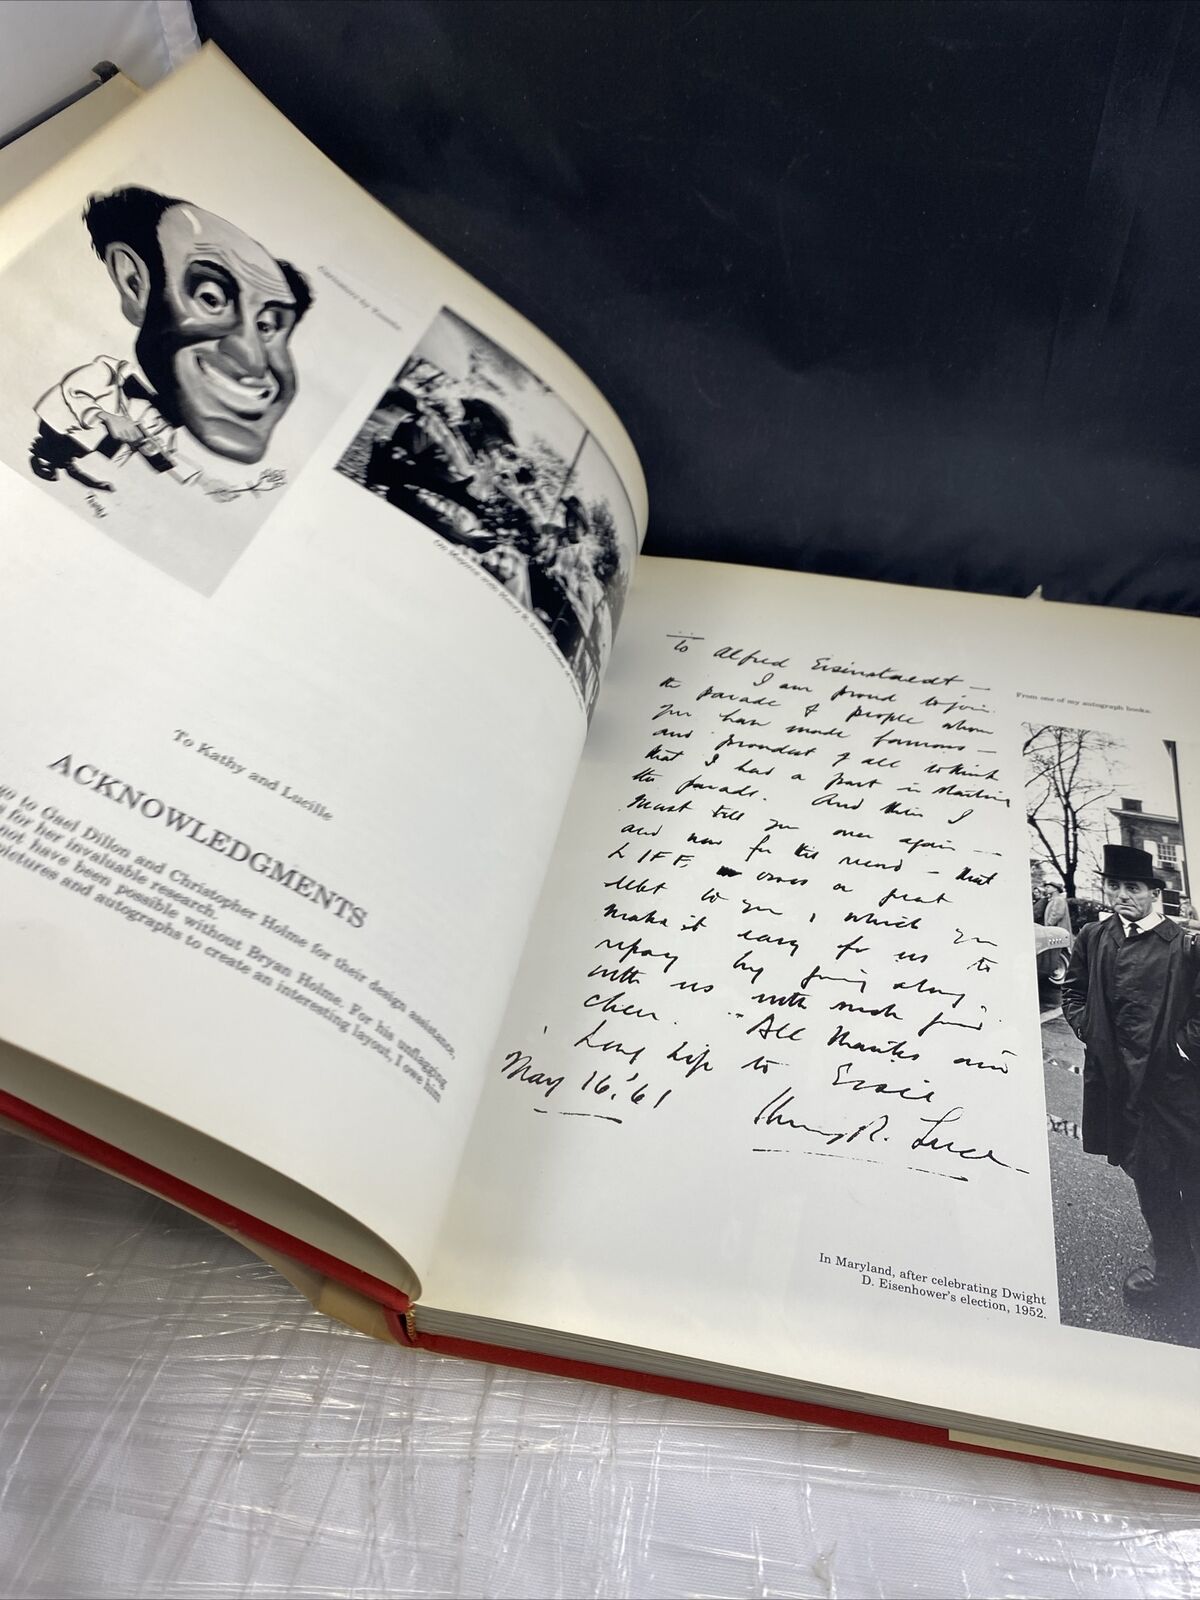 To Kathy and Lucille
ACKNOWLEDGMENTS
go to Gael Dillon and Christopher Holme for their design assistance,
for her invaluable research.
not have been possible without Bryan Holme. For his unflagging
pictures and autographs to create an interesting layout, I owe him
To Alfred Eisenstaedt —
I am proud to join
the parade of people whom
you have made famous —
and proudest of all to think
that I had a part in starting
the parade. And then I
must tell you once again —
and now for the record — that
LIFE owes a great
debt to you, which you
make it easy for us to
repay by going along
with us with such good
cheer. All thanks and
Long Life to Eisie
May 16, '61
Henry R. Luce
From one of my autograph books.
In Maryland, after celebrating Dwight
D. Eisenhower's election, 1952.